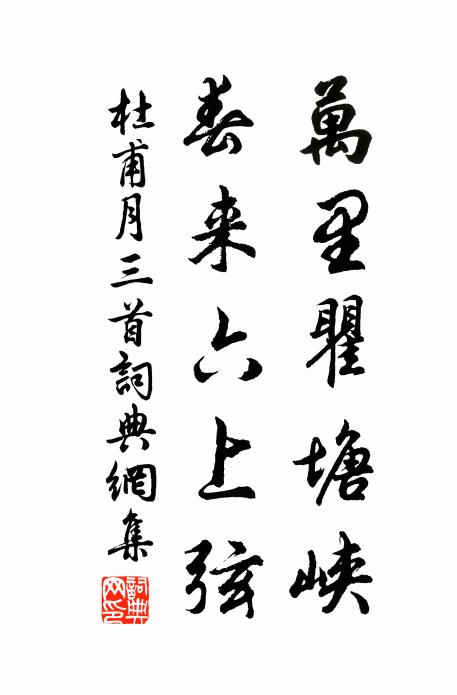 萬里瞿塘峽
春来六上弦
杜甫月三首詞典網集
詞典网印